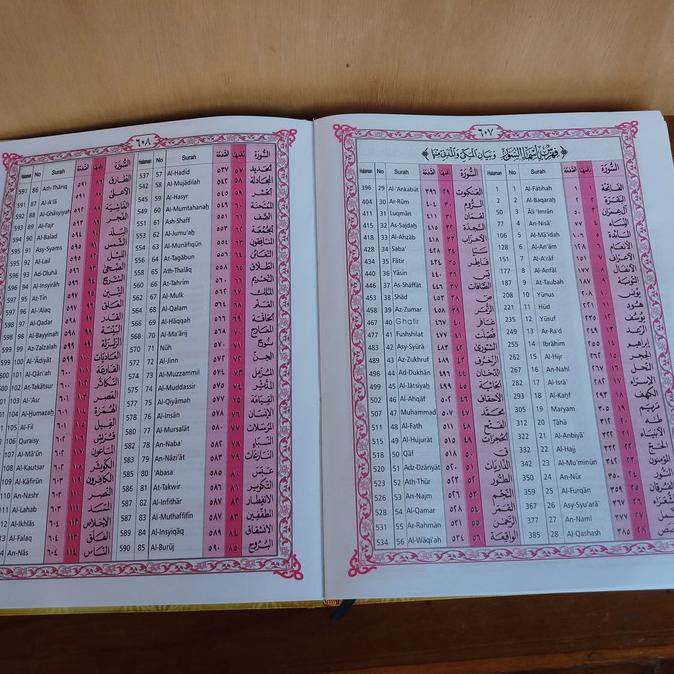 ٦٠٧
فهرس بأسماء السور وبيان المكي والمدني منها
Halaman No Surah الصفحة رقمها السورة
1 1 Al-Fātihah ١ ١ الفاتحة
2 2 Al-Baqarah ٢ ٢ البقرة
50 3 Āli 'Imrān ٥٠ ٣ آل عمران
77 4 An-Nisā' ٧٧ ٤ النساء
106 5 Al-Mā'idah ١٠٦ ٥ المائدة
128 6 Al-An'ām ١٢٨ ٦ الأنعام
151 7 Al-A'rāf ١٥١ ٧ الأعراف
177 8 Al-Anfāl ١٧٧ ٨ الأنفال
187 9 At-Taubah ١٨٧ ٩ التوبة
208 10 Yūnus ٢٠٨ ١٠ يونس
221 11 Hūd ٢٢١ ١١ هود
235 12 Yūsuf ٢٣٥ ١٢ يوسف
249 13 Ar-Ra'd ٢٤٩ ١٣ الرعد
255 14 Ibrāhīm ٢٥٥ ١٤ إبراهيم
262 15 Al-Hijr ٢٦٢ ١٥ الحجر
267 16 An-Nahl ٢٦٧ ١٦ النحل
282 17 Al-Isrā' ٢٨٢ ١٧ الإسراء
293 18 Al-Kahf ٢٩٣ ١٨ الكهف
305 19 Maryam ٣٠٥ ١٩ مريم
312 20 Tāhā ٣١٢ ٢٠ طه
322 21 Al-Anbiyā' ٣٢٢ ٢١ الأنبياء
332 22 Al-Hajj ٣٣٢ ٢٢ الحج
342 23 Al-Mu'minūn ٣٤٢ ٢٣ المؤمنون
350 24 An-Nūr ٣٥٠ ٢٤ النور
359 25 Al-Furqān ٣٥٩ ٢٥ الفرقان
367 26 Asy-Syu'arā' ٣٦٧ ٢٦
377 27 An-Naml ٣٧٧ ٢٧
385 28 Al-Qashash ٣٨٥ ٢٨
Halaman No Surah الصفحة رقمها السورة
396 29 Al-'Ankabūt ٣٩٦ ٢٩ العنكبوت
404 30 Ar-Rūm ٤٠٤ ٣٠ الروم
411 31 Luqmān ٤١١ ٣١ لقمان
415 32 As-Sajdah ٤١٥ ٣٢ السجدة
418 33 Al-Ahzāb ٤١٨ ٣٣ الأحزاب
428 34 Saba' ٤٢٨ ٣٤ سبأ
434 35 Fātir ٤٣٤ ٣٥ فاطر
440 36 Yāsin ٤٤٠ ٣٦ يس
446 37 As-Shāffāt ٤٤٦ ٣٧ الصافات
453 38 Shād ٤٥٣ ٣٨ ص
458 39 Az-Zumar ٤٥٨ ٣٩ الزمر
467 40 Ghafir ٤٦٧ ٤٠ غافر
477 41 Fushshilat ٤٧٧ ٤١ فصلت
483 42 Asy-Syūrā ٤٨٣ ٤٢ الشورى
489 43 Az-Zukhruf ٤٨٩ ٤٣ الزخرف
496 44 Ad-Dukhān ٤٩٦ ٤٤ الدخان
499 45 Al-Jātsiyah ٤٩٩ ٤٥ الجاثية
502 46 Al-Ahqāf ٥٠٢ ٤٦ الأحقاف
507 47 Muhammad ٥٠٧ ٤٧ محمد
511 48 Al-Fath ٥١١ ٤٨ الفتح
515 49 Al-Hujurāt ٥١٥ ٤٩ الحجرات
518 50 Qāf ٥١٨ ٥٠ ق
520 51 Adz-Dzāriyāt ٥٢٠ ٥١ الذاريات
523 52 Ath-Thūr ٥٢٣ ٥٢ الطور
526 53 An-Najm ٥٢٦ ٥٣ النجم
528 54 Al-Qamar ٥٢٨ ٥٤ القمر
531 55 Ar-Rahmān ٥٣١ ٥٥ الرحمن
534 56 Al-Wāqi'ah ٥٣٤ ٥٦ الواقعة
٦٠٨
Halaman No Surah الصفحة رقمها السورة
537 57 Al-Hadid ٥٣٧ ٥٧ الحديد
542 58 Al-Mujādilah ٥٤٢ ٥٨ المجادلة
545 59 Al-Hasyr ٥٤٥ ٥٩ الحشر
549 60 Al-Mumtahanah ٥٤٩ ٦٠ الممتحنة
551 61 Ash-Shaff ٥٥١ ٦١ الصف
553 62 Al-Jumu'ah ٥٥٣ ٦٢ الجمعة
554 63 Al-Munāfiqūn ٥٥٤ ٦٣ المنافقون
556 64 At-Tagābun ٥٥٦ ٦٤ التغابن
558 65 Ath-Thalāq ٥٥٨ ٦٥ الطلاق
560 66 At-Tahrim ٥٦٠ ٦٦ التحريم
562 67 Al-Mulk ٥٦٢ ٦٧ الملك
564 68 Al-Qalam ٥٦٤ ٦٨ القلم
566 69 Al-Hāqqah ٥٦٦ ٦٩ الحاقة
568 70 Al-Ma'ārij ٥٦٨ ٧٠ المعارج
570 71 Nūh ٥٧٠ ٧١ نوح
572 72 Al-Jinn ٥٧٢ ٧٢ الجن
574 73 Al-Muzzammil ٥٧٤ ٧٣ المزمل
575 74 Al-Muddassir ٥٧٥ ٧٤ المدثر
577 75 Al-Qiyāmah ٥٧٧ ٧٥ القيامة
578 76 Al-Insān ٥٧٨ ٧٦ الإنسان
580 77 Al-Mursalāt ٥٨٠ ٧٧ المرسلات
582 78 An-Naba' ٥٨٢ ٧٨ النبأ
583 79 An-Nāzi'āt ٥٨٣ ٧٩ النازعات
585 80 'Abasa ٥٨٥ ٨٠ عبس
586 81 At-Takwir ٥٨٦ ٨١ التكوير
587 82 Al-Infithār ٥٨٧ ٨٢ الانفطار
587 83 Al-Muthaffifin ٥٨٧ ٨٣ المطففين
589 84 Al-Insyiqāq ٥٨٩ ٨٤ الانشقاق
590 85 Al-Burūj ٥٩٠ ٨٥ البروج
Halaman No Surah الصفحة رقمها السورة
591 86 Ath-Thāriq ٥٩١ ٨٦ الطارق
591 87 Al-A'lā ٥٩١ ٨٧ الأعلى
88 Al-Ghāsyiyah ٨٨ الغاشية
89 Al-Fajr ٨٩ الفجر
90 Al-Balad ٩٠ البلد
595 91 Asy-Syams ٥٩٥ ٩١ الشمس
595 92 Al-Lail ٥٩٥ ٩٢ الليل
596 93 Ad-Dluhā ٥٩٦ ٩٣ الضحى
596 94 Al-Insyirāh ٥٩٦ ٩٤ الشرح
597 95 At-Tin ٥٩٧ ٩٥ التين
597 96 Al-'Alaq ٥٩٧ ٩٦ العلق
598 97 Al-Qadar ٥٩٨ ٩٧ القدر
598 98 Al-Bayyinah ٥٩٨ ٩٨ البينة
599 99 Az-Zalzalah ٥٩٩ ٩٩ الزلزلة
599 100 Al-'Ādiyāt ٥٩٩ ١٠٠ العاديات
101 Al-Qāri'ah ١٠١ القارعة
102 At-Takātsur ١٠٢ التكاثر
103 Al-'Asr ١٠٣ العصر
104 Al-Humazah ٦٠١ ١٠٤ الهمزة
105 Al-Fil ٦٠١ ١٠٥ الفيل
106 Quraisy ٦٠٢ ١٠٦ قريش
107 Al-Mā'ūn ٦٠٢ ١٠٧ الماعون
108 Al-Kautsar ٦٠٢ ١٠٨ الكوثر
109 Al-Kāfirūn ٦٠٣ ١٠٩ الكافرون
110 An-Nashr ٦٠٣ ١١٠ النصر
111 Al-Lahab ٦٠٣ ١١١ المسد
112 Al-Ikhlās ٦٠٤ ١١٢ الإخلاص
Al-Falaq ٦٠٤ ١١٣ الفلق
An-Nās ٦٠٤ ١١٤ الناس